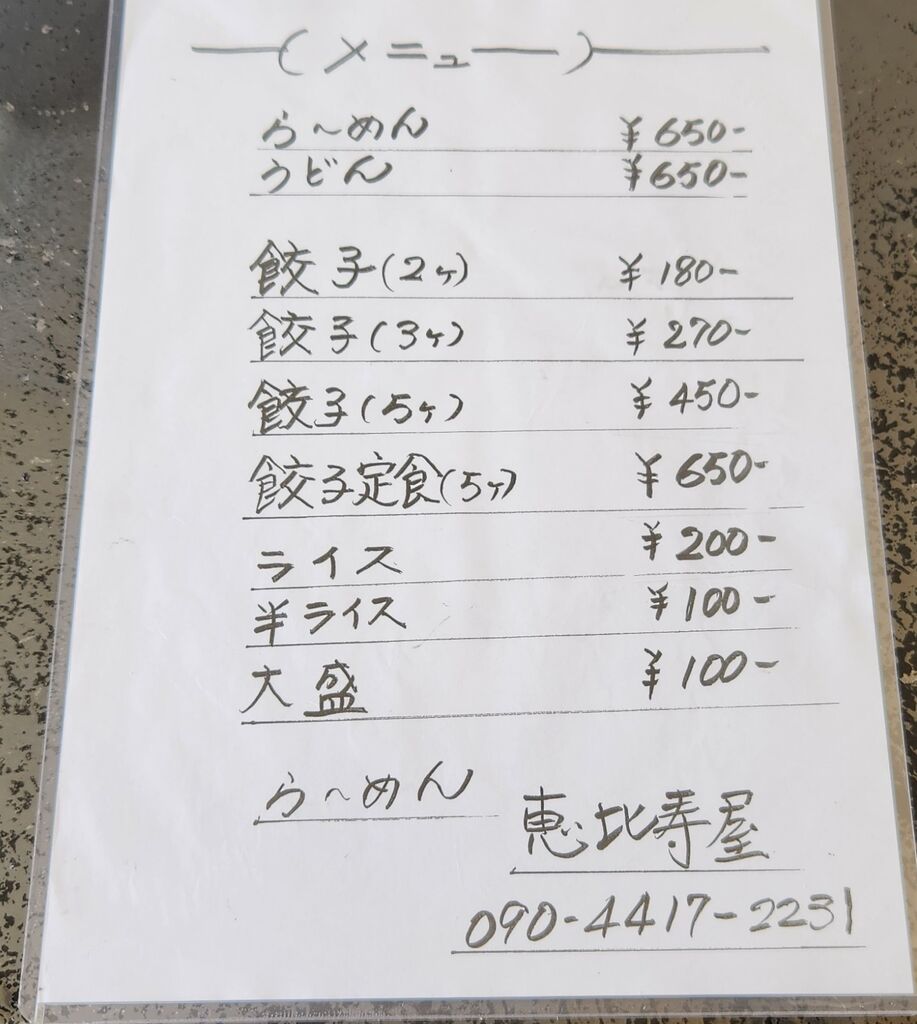 (メニュー)
ら～めん ¥650-
うどん ¥650-
餃子(2ヶ) ¥180-
餃子(3ヶ) ¥270-
餃子(5ヶ) ¥450-
餃子定食(5ヶ) ¥650-
ライス ¥200-
半ライス ¥100-
大盛 ¥100-
ら～めん
恵比寿屋
090-4417-2231